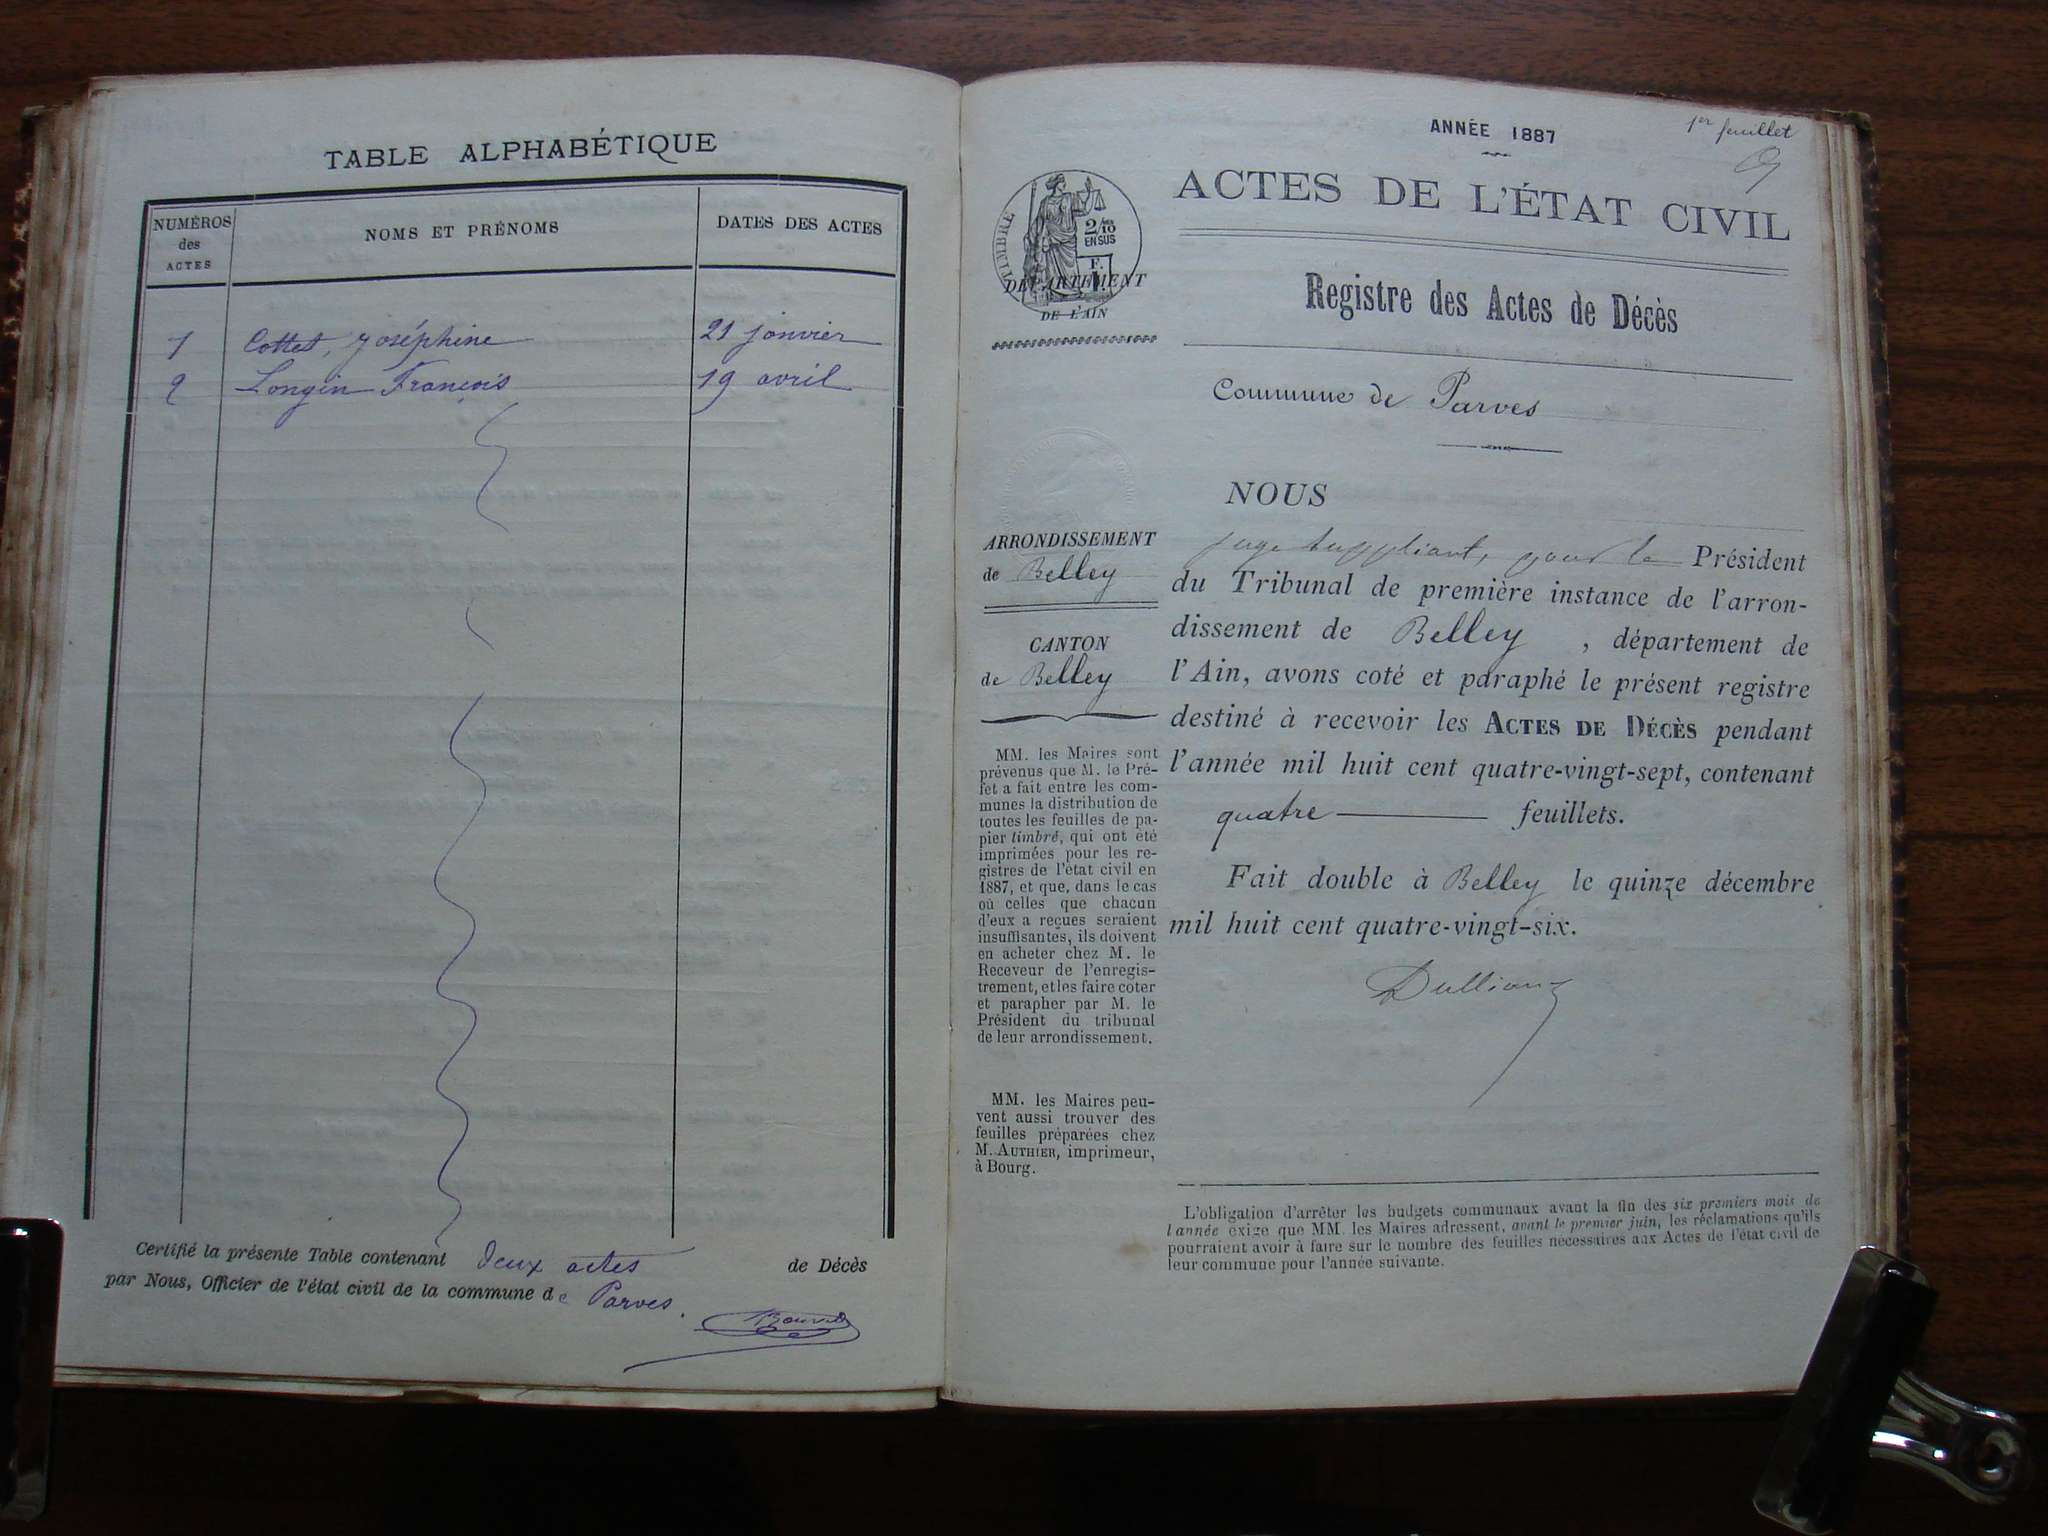 TABLE ALPHABÉTIQUE
NUMÉROS
des
ACTES
NOMS ET PRÉNOMS
DATES DES ACTES
1 Cottet, Joséphine 21 janvier
2 Longin François 19 avril
Certifié la présente Table contenant deux actes de Décès
par Nous, Officier de l'état civil de la commune de Parves.
1er feuillet
ANNÉE 1887
ACTES DE L'ÉTAT CIVIL
TIMBRE
2/10
EN SUS
F.
1
DÉPARTEMENT
DE L'AIN
Registre des Actes de Décès
Commune de Parves
ARRONDISSEMENT
de Belley
CANTON
de Belley
MM. les Maires sont
prévenus que M. le Pré-
fet a fait entre les com-
munes la distribution de
toutes les feuilles de pa-
pier timbré, qui ont été
imprimées pour les re-
gistres de l'état civil en
1887, et que, dans le cas
où celles que chacun
d'eux a reçues seraient
insuffisantes, ils doivent
en acheter chez M. le
Receveur de l'enregis-
trement, et les faire coter
et parapher par M. le
Président du tribunal
de leur arrondissement.
MM. les Maires peu-
vent aussi trouver des
feuilles préparées chez
M. AUTHIER, imprimeur,
à Bourg.
NOUS
juge suppliant, pour le Président
du Tribunal de première instance de l'arron-
dissement de Belley, département de
l'Ain, avons coté et paraphé le présent registre
destiné à recevoir les ACTES DE DÉCÈS pendant
l'année mil huit cent quatre-vingt-sept, contenant
quatre feuillets.
Fait double à Belley le quinze décembre
mil huit cent quatre-vingt-six.
L'obligation d'arrêter les budgets communaux avant la fin des six premiers mois de
l'année exige que MM. les Maires adressent, avant le premier juin, les réclamations qu'ils
pourraient avoir à faire sur le nombre des feuilles nécessaires aux Actes de l'état civil de
leur commune pour l'année suivante.